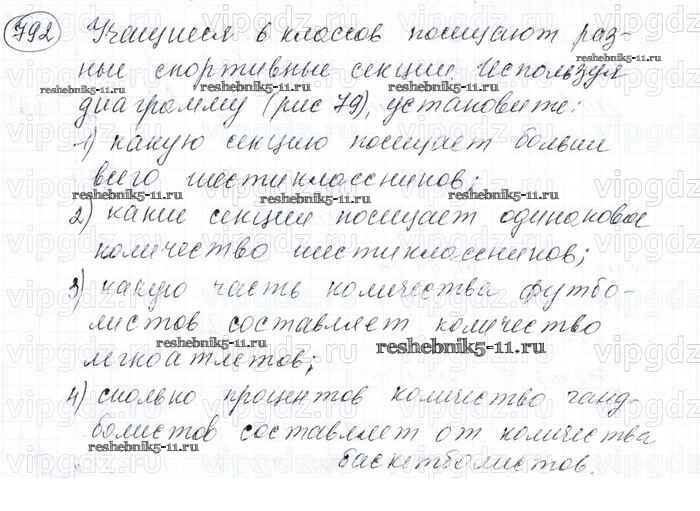 792 Учащиеся 6 классов посещают раз-
ные спортивные секции. Используя
reshebnik5-11.ru reshebnik5-11.ru
диаграмму (рис 79), установите:
1) какую секцию посещает больше
всего шестиклассников;
reshebnik5-11.ru reshebnik5-11.ru reshebnik5-11.ru
2) какие секции посещает одинаковое
количество шестиклассников;
3) какую часть количества футбо-
листов составляет количество
легкоатлетов;
reshebnik5-11.ru reshebnik5-11.ru
4) сколько процентов количество ганд-
болистов составляет от количества
reshebnik5-11.ru reshebnik5-11.ru
баскетболистов.